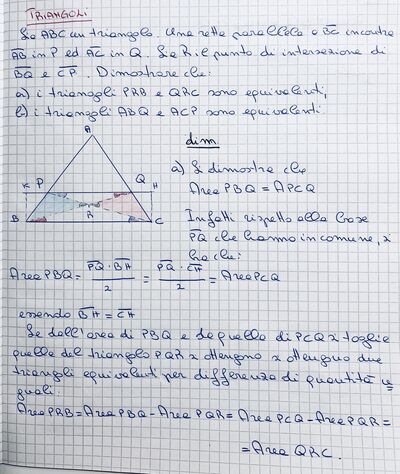 TRIANGOLI
Sia ABC un triangolo. Una retta parallela a BC incontra
AB in P ed AC in Q. Sia R il punto di intersezione di
BQ e CP. Dimostrare che:
a) i triangoli PRB e QRC sono equivalenti;
b) i triangoli ABQ e ACP sono equivalenti.
dim
A
K P Q H
R
B C
a) Si dimostra che
Area PBQ = APCQ
Infatti rispetto alla base
PQ che hanno in comune, si
ha che:
Area PBQ = PQ · BH / 2 = PQ · CH / 2 = Area PCQ
essendo BH = CH
Se dall'area di PBQ e da quella di PCQ si toglie
quella del triangolo PQR si ottengono si ottengono due
triangoli equivalenti per differenza di quantità u
guali:
Area PRB = Area PBQ - Area PQR = Area PCQ - Area PQR =
= Area QRC.